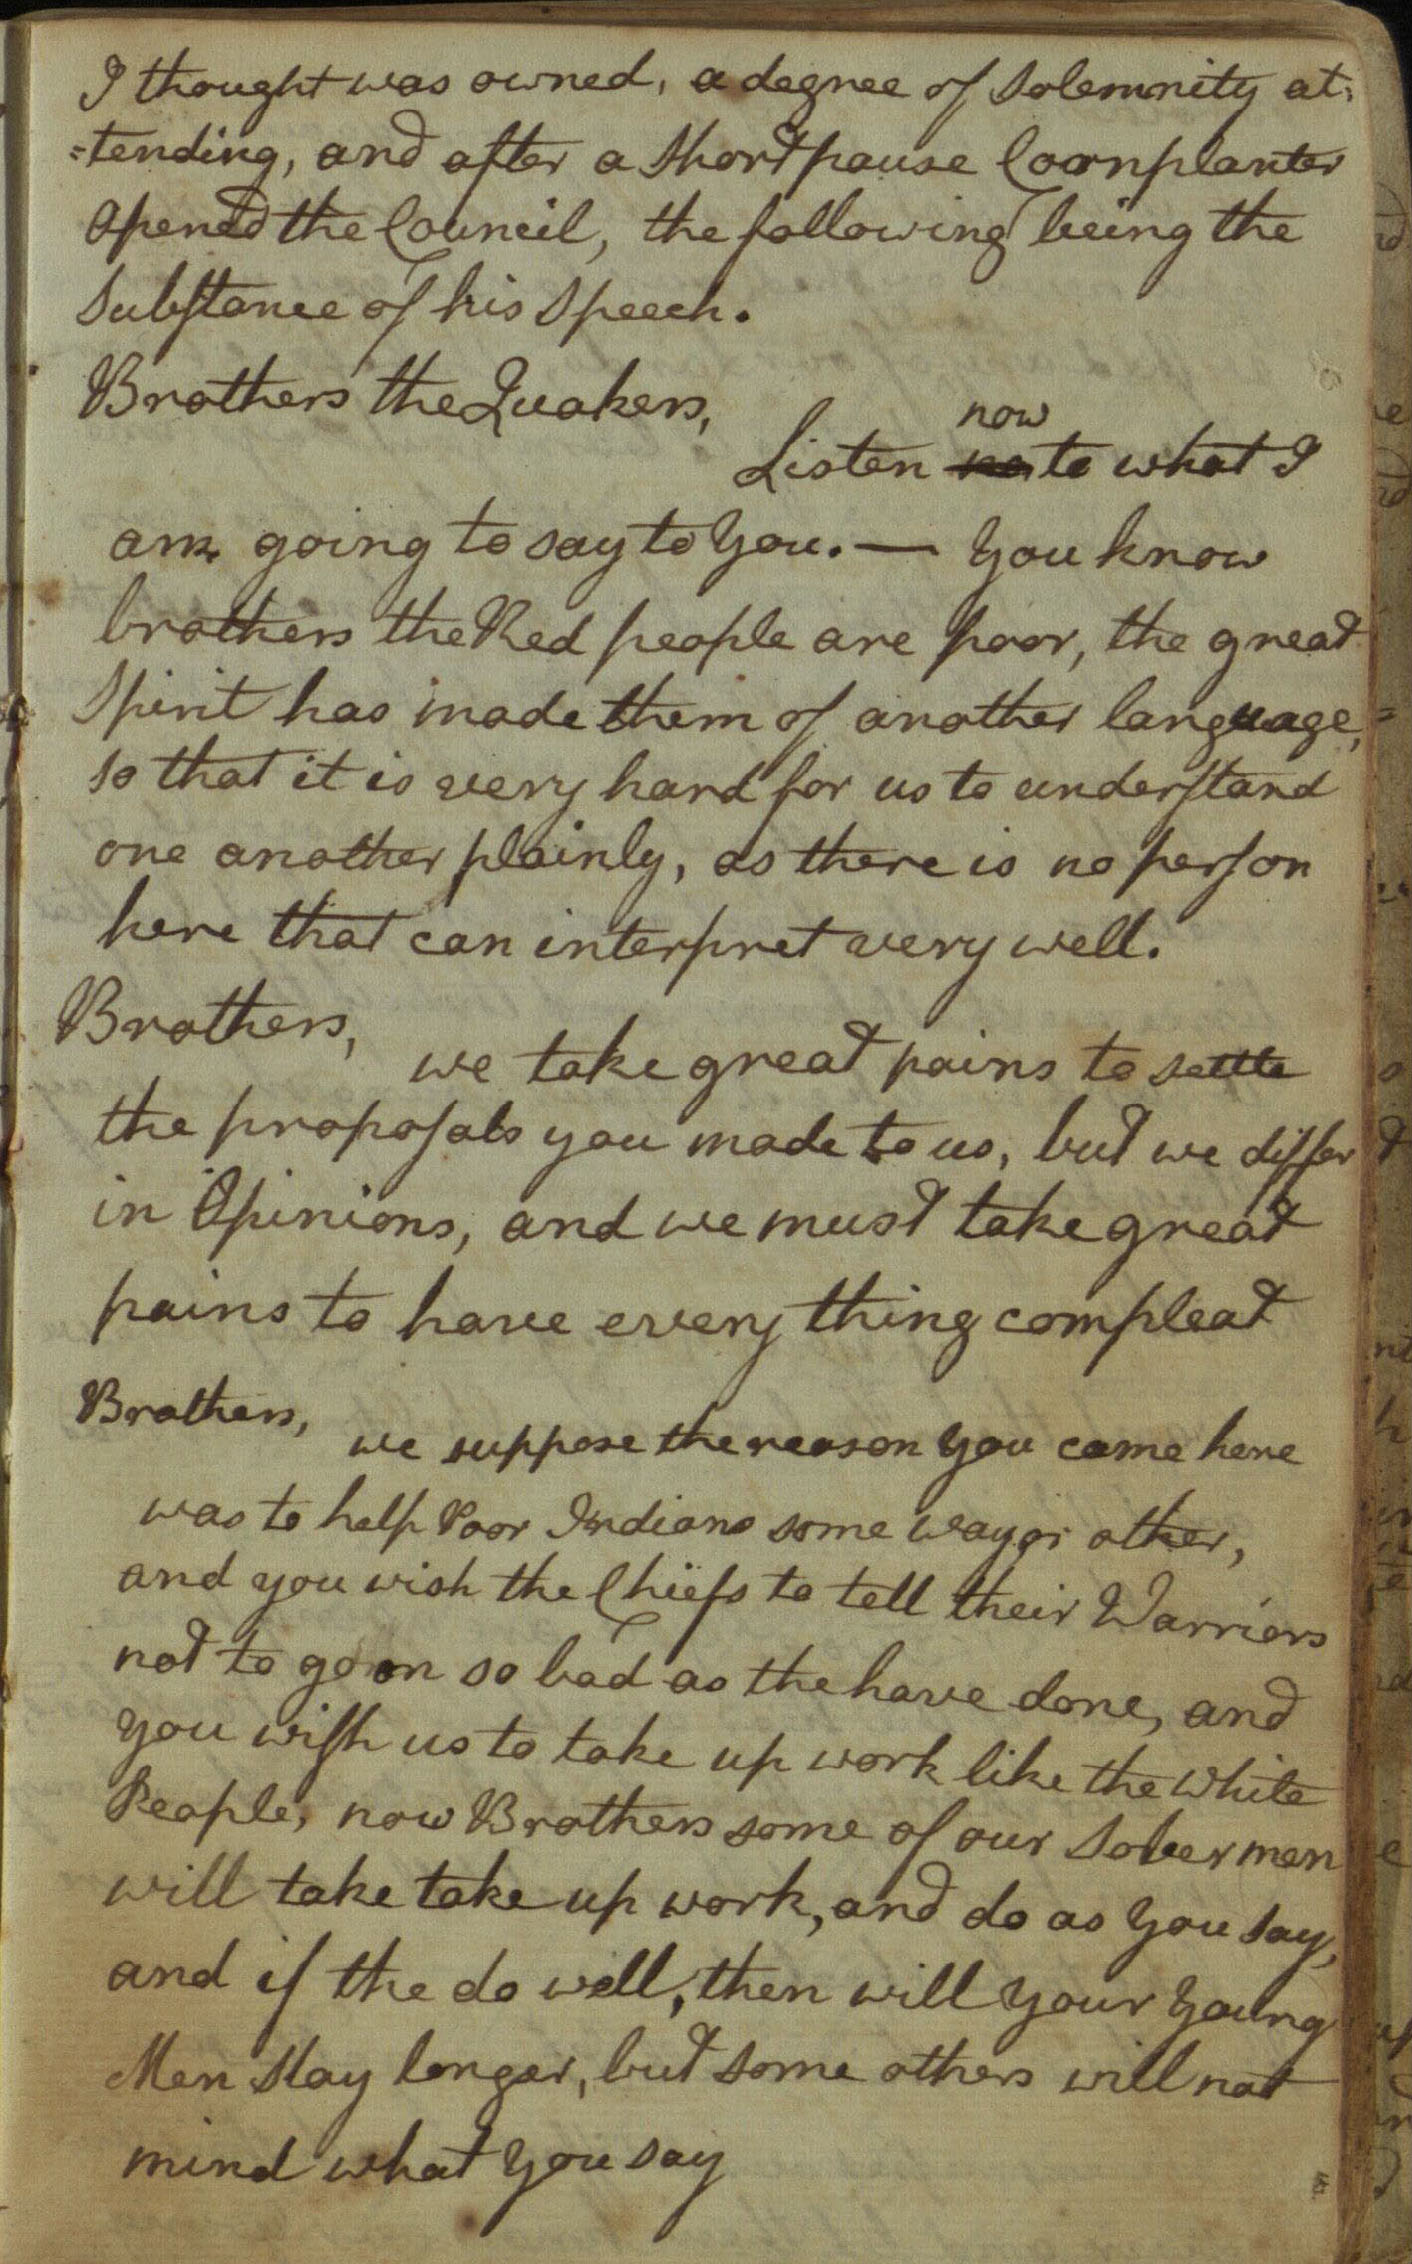 I thought was owned, a degree of Solemnity at=
=tending, and after a short pause Cornplanter
opened the Council, the following being the
Substance of his Speech.
Brothers the Quakers,
now
Listen to what I
am going to say to You. — You know
brothers the Red people are poor, the great
Spirit has made them of another language,
so that it is very hard for us to understand
one another plainly, as there is no person
here that can interpret very well.
Brothers,
we take great pains to settle
the proposals you made to us, but we differ
in Opinions, and we must take great
pains to have every thing compleat
Brothers,
we suppose the reason you came here
was to help Poor Indians some way or other,
and you wish the Chiefs to tell their Warriors
not to go on so bad as the have done, and
you wish us to take up work like the White
People, now Brothers some of our Sober men
will take take up work, and do as You Say,
and if the do well, then will Your Young
Men Stay longer, but some others will not
mind what You say